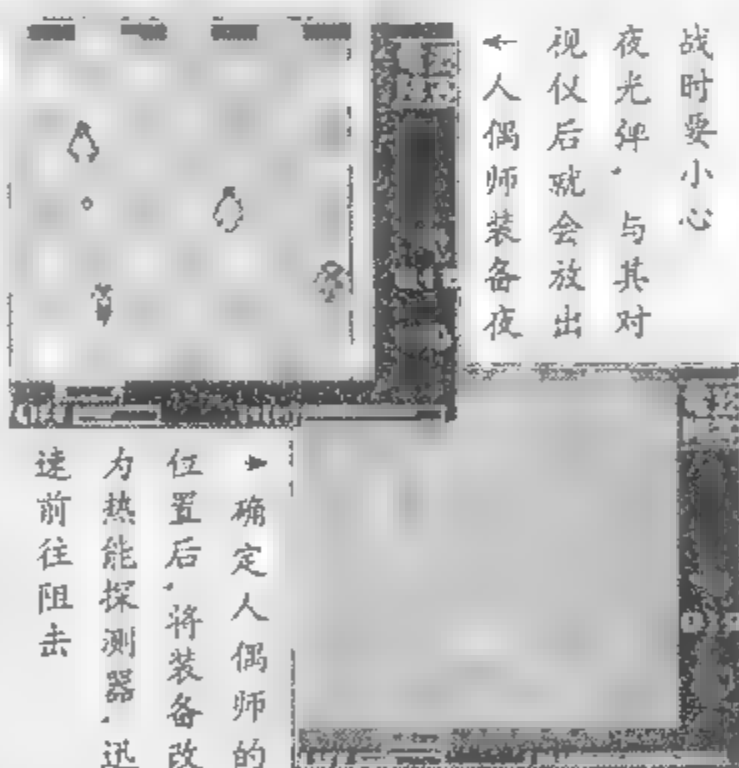 ←人偶师装备夜
视仪后就会放出
夜光弹，与其对
战时要小心
►确定人偶师的
位置后，将装备改
为热能探测器，迅
速前往阻击